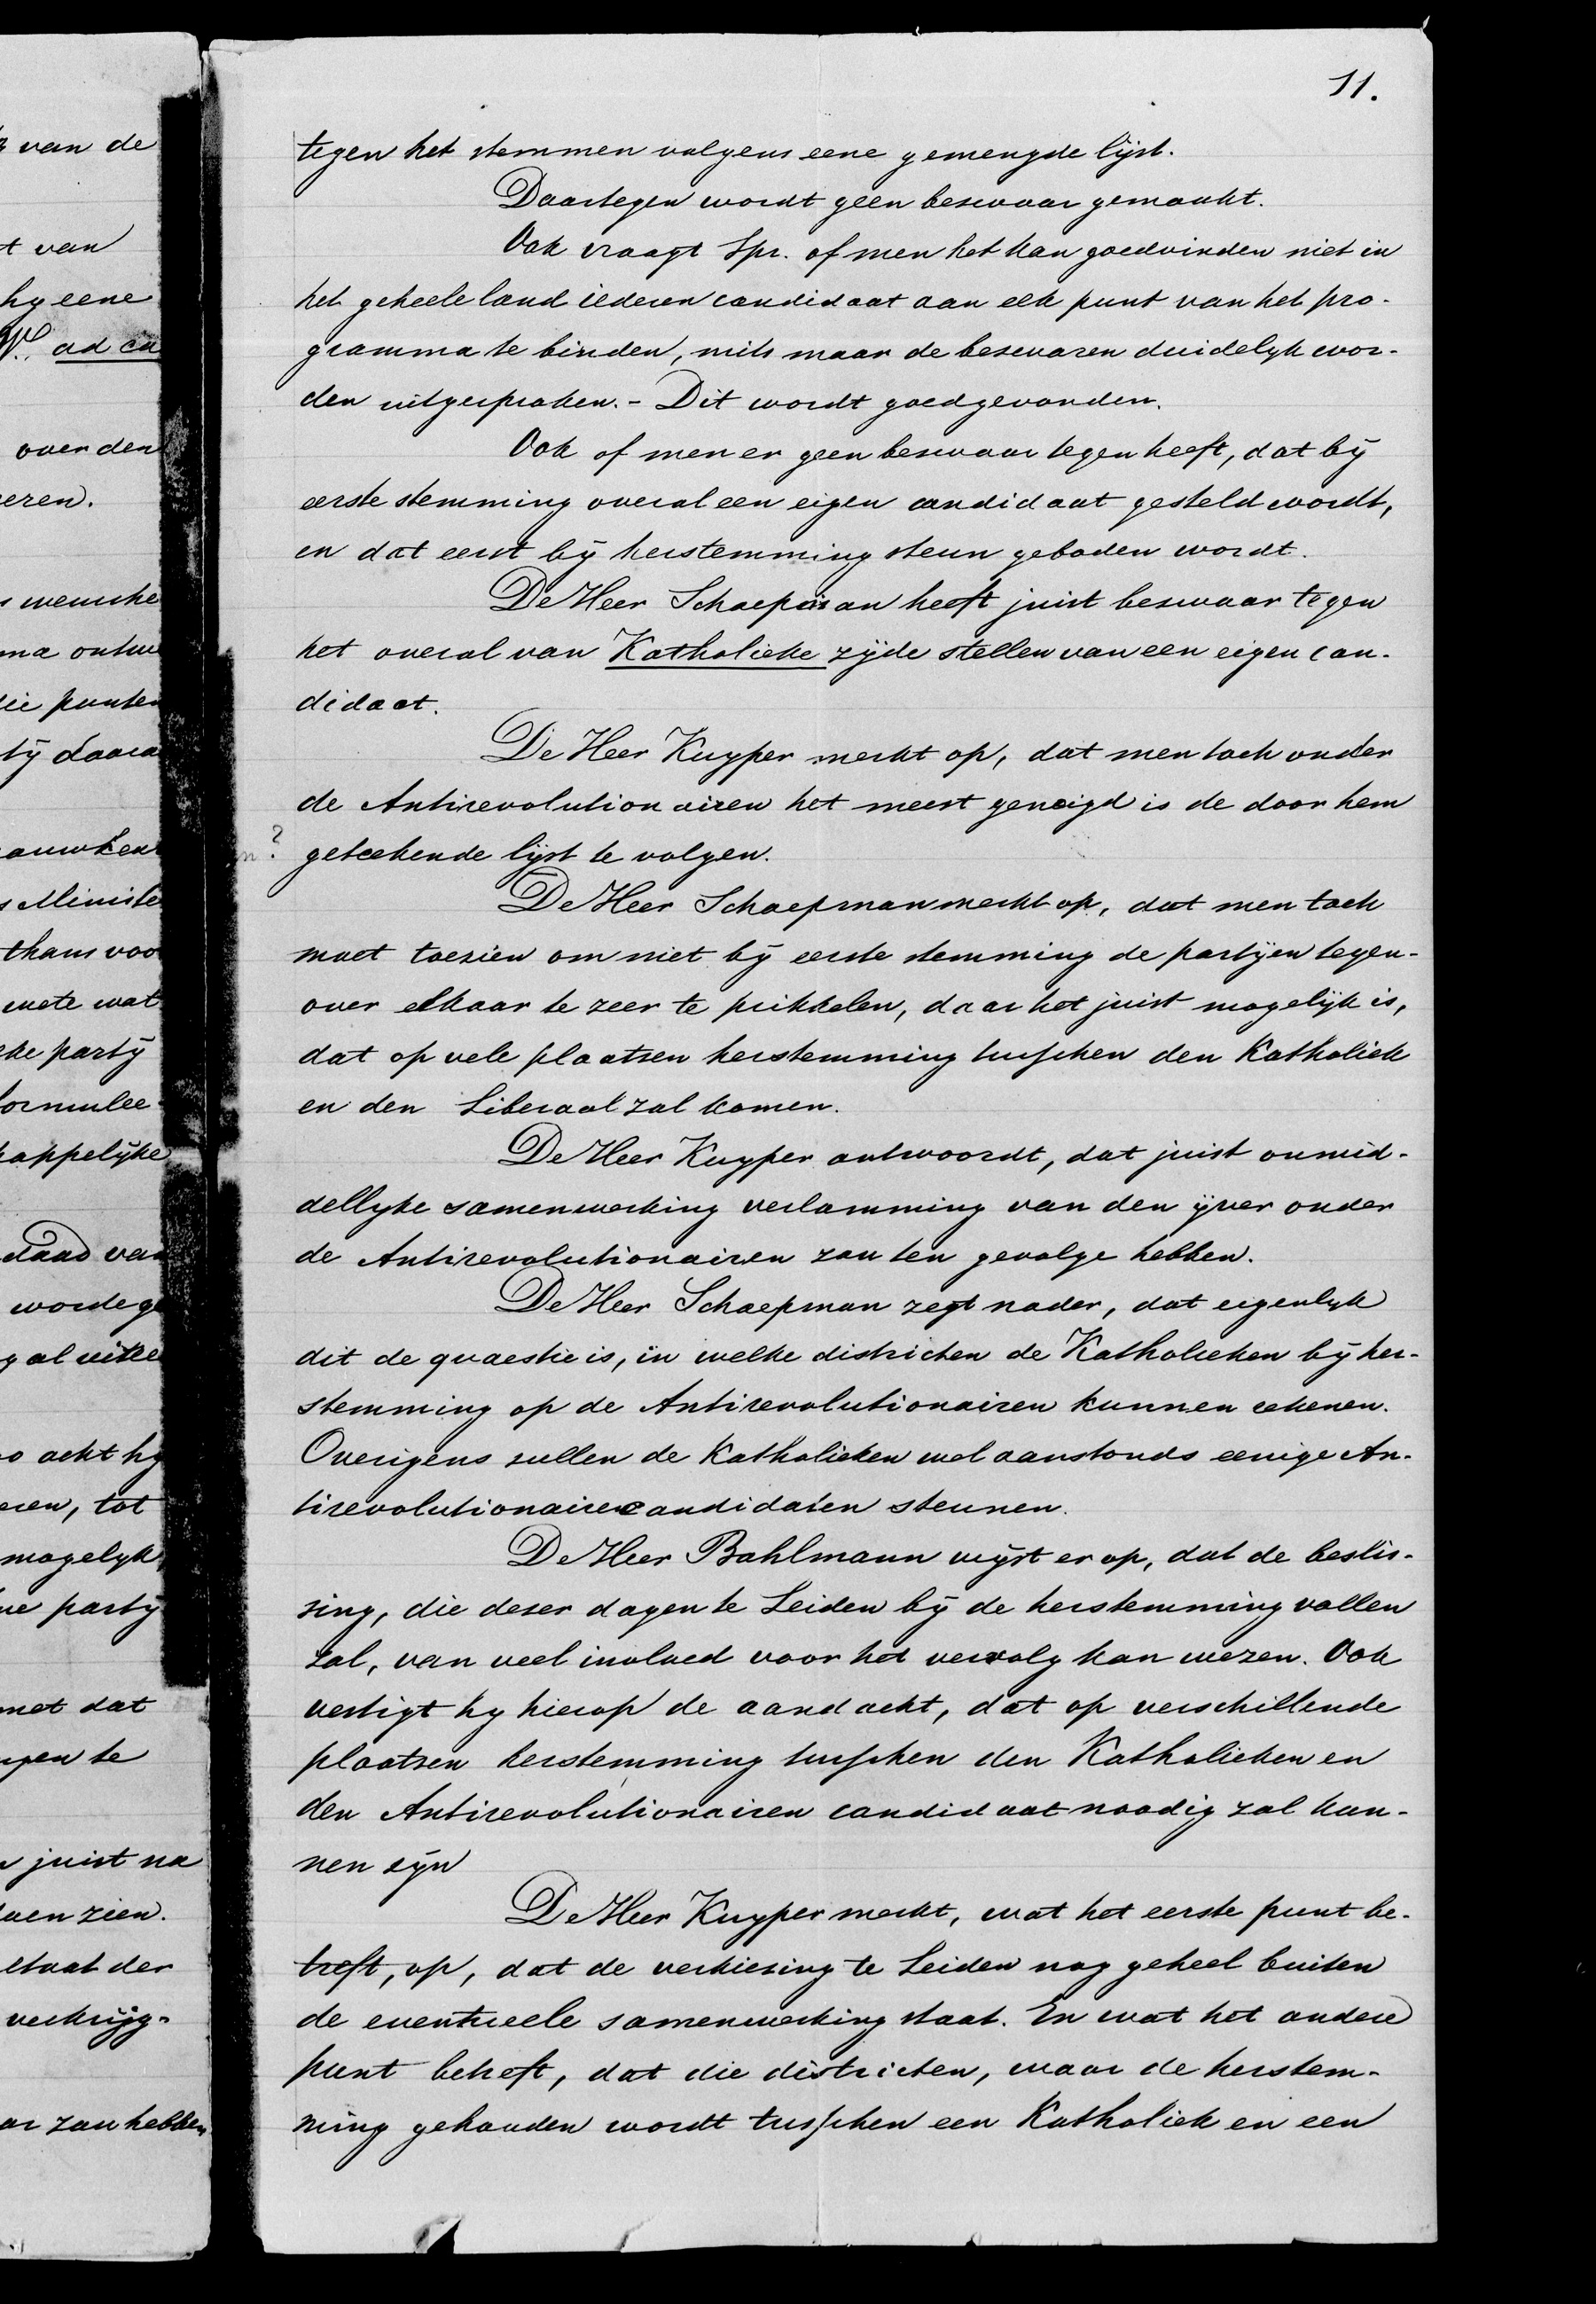 11.
tegen het stemmen volgens eene gemengde lijst.
Daartegen wordt geen beswaar gemaakt.
Ook vraagt Spr. of men het kan goedvinden niet in
het geheele land iederen candidaat aan elk punt van het pro-
gramma te binden, mits maar de beswaren duidelyk wor-
den uitgesproken. - Dit wordt goedgevonden.
Ook of men er geen beswaar tegen heeft, dat bij
eerste stemming overal een eigen candidaat gesteld wordt,
en dat eerst bij herstemming steun geboden wordt.
De Heer Schaepman heeft juist beswaar tegen
het overal van Katholieke zijde stellen van een eigen can-
didaat.
De Heer Kuyper merkt op, dat men toch onder
de Antirevolutionairen het meest geneigd is de door hem
n? geteekende lijst te volgen.
De Heer Schaepman merkt op, dat men toch
moet toesien om niet bij eerste stemming de partijen tegen-
over elkaar te zeer te prikkelen, daar het juist mogelijk is,
dat op vele plaatsen herstemming tusschen den Katholiek
en den Liberaal zal komen.
De Heer Kuyper antwoordt, dat juist onmid-
dellyke samenwerking verlamming van den ijver onder
de Antirevolutionairen zou ten gevolge hebben.
De Heer Schaepman zegt nader, dat eigenlyk
dit de quaestie is, in welke districten de Katholieken bij her-
stemming op de Antirevolutionairen kunnen rekenen.
Overigens sullen de Katholieken wel aanstonds eenige An-
tirevolutionaire candidaten steunen.
De Heer Bahlmann wijst er op, dat de beslis-
sing, die deser dagen te Leiden bij de herstemming vallen
zal, van veel invloed voor het vervolg kan wezen. Ook
vestigt hy hierop de aandacht, dat op verschillende
plaatsen herstemming tusschen den Katholieken en
den Antirevolutionairen candidaat noodig zal kun-
nen sijn
De Heer Kuyper merkt, wat het eerste punt be-
treft, op, dat de verkiesing te Leiden nog geheel buiten
de eventueele samenwerking staat. En wat het andere
punt betreft, dat die districten, waar de herstem-
ming gehouden wordt tusschen een Katholiek en een